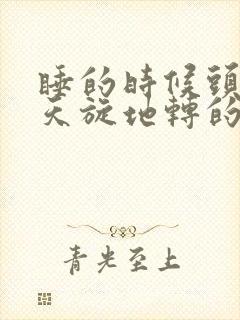 睡的時候頭
天旋地轉的
青光至上